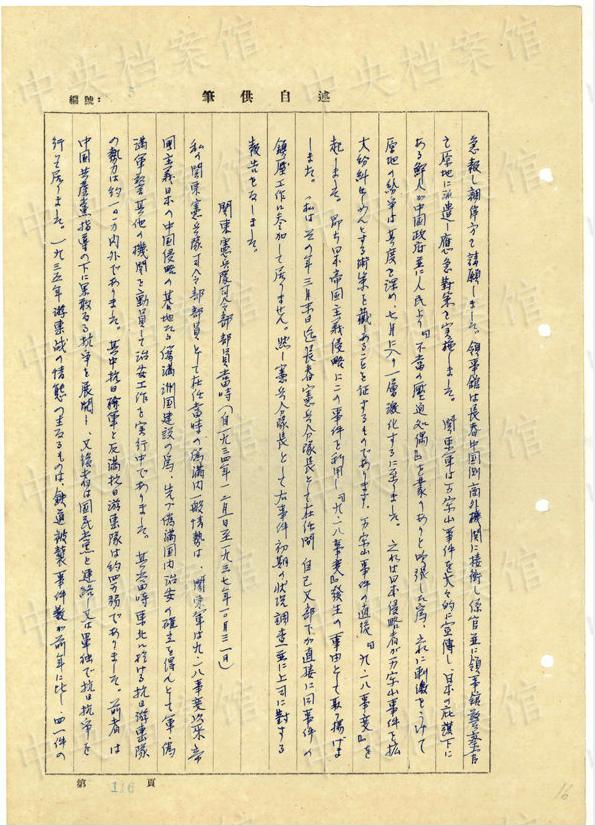 編號:
筆供自述
急報し朝鮮〻請願しました。領事館は長春中国側商外機関に接衝し係官並に領事館警察官
を屋地に派遣し應急対策を実施しました。関東軍は万宝山事件を大々的に宣傳し日本の庇護下に
ある鮮人が中国政府並に人民より『不當の壓迫処偶』を蒙りありと吟張した為、之れに刺激をうけて
屋地の紛爭は其度を深め、七月に入り一層激化するに至りました。之れは日本侵略者が万宝山事件を拡
大紛糾せしめんとする術策を蔵しあることを証するものであります。万宝山事件の直後『九.一八事変』を
起しました。即ち日本帝国主義侵略にこの事件を利用し『九.一八事変』発生の事由として取り揚げま
しました。(私は其の年三月末迄長春憲兵分隊長として在任間自己又部下が直接に同事件の
鎮壓工作に参加して居りません。然し憲兵分隊長として右事件初期の状況調査並に上司に対する
報告をなしました。
関東憲兵隊司令部部員當時(自一九三四年二月一日至一九三七年一月三一日)
私の関東憲兵隊司令部部員として在任當時の偽満内一般情勢は、関東軍は九.一八事変以来帝
国主義日本の中国侵略の基地たる偽満洲国建設の為、先づ偽満国内治安の確立を得んとして軍、偽
満軍警其他の機関を動員して治安工作を実行中でありました。其當時東北に於ける抗日游擊隊
の勢力は約一〇万内外でありました。其中抗日聯軍と反満抗日游擊隊は約四万弱でありました。前者は
中国共産党指導の下に果敢なる抗爭を展開し、又後者は国民党と連絡し又は單独で抗日抗爭を
行て居りました。一九三五年游擊战の情態の主なるものは、鉄道被襲事件数が前年に比し四一件の
第 116 頁
16
中央档案馆